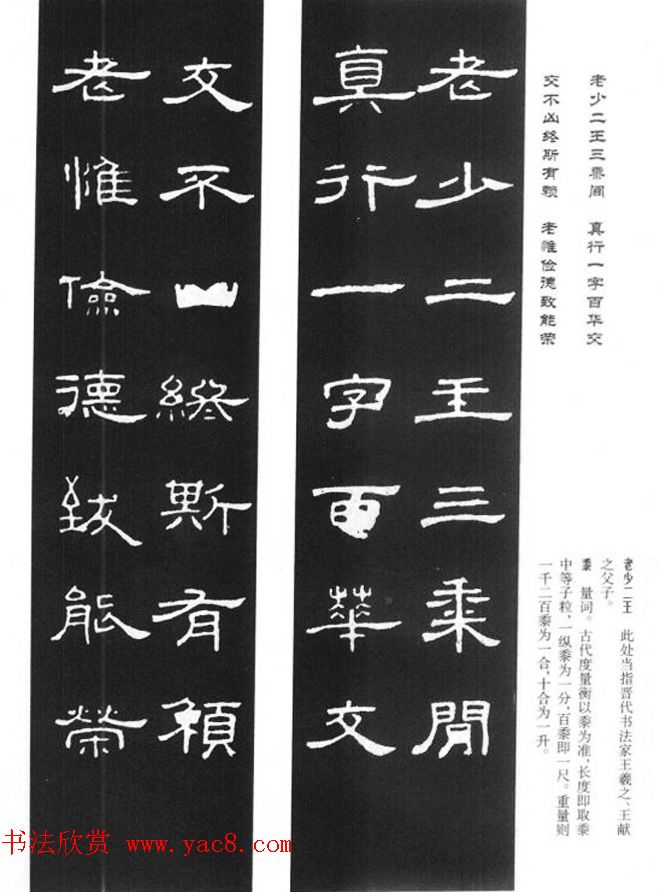 老少二王三黍间 真行一字百华交
交不凶终斯有赖 老惟俭德致能荣
老少二王 此处当指晋代书法家王羲之、王献
之父子。
黍 量词。古代度量衡以黍为准,长度即取黍
中等子粒,一纵黍为一分,百黍即一尺。重量则
一千二百黍为一合,十合为一升。
老少二王三黍閒
真行一字百華交
交不凶終斯有賴
老惟儉德致能榮
书法欣赏 www.yac8.com